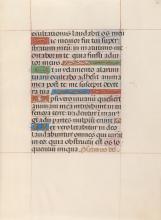 exultationis laudabit os meu
Sic memor fui tui super
stratum meum in matutinis me
ditabor in te quia fuisti adiu
tor meus
Et in velamento alarum tua
rum exultabo adhesit ani
ma mea post te me suscepit dexte
ra tua
Ipsi vero in vanum quesierut
animam meam introibunt in in
feriora terre tradentur in man
gladii partes vulpium erunt
Rex vero letabitur in deo lau
dabuntur omnes qui iurant
in eo quia obstructum est os lo
quentium iniqua